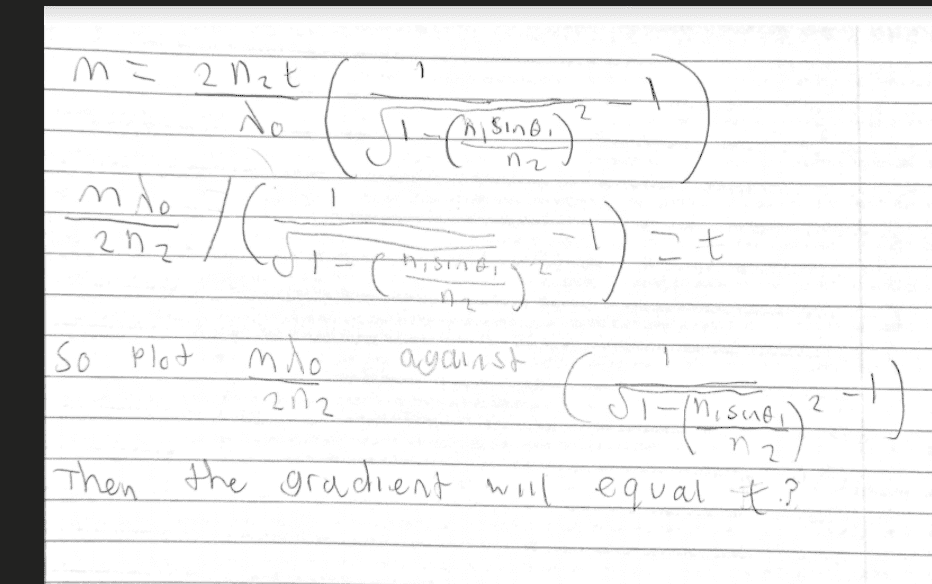 m = 2n₂t/λ₀ (1/√(1-(n₁sinθ₁/n₂)²) - 1)
mλ₀/2n₂ / (1/√(1-(n₁sinθ₁/n₂)²) - 1) = t
So plot mλ₀/2n₂ against (1/√(1-(n₁sinθ₁/n₂)²) - 1)
Then the gradient will equal t?